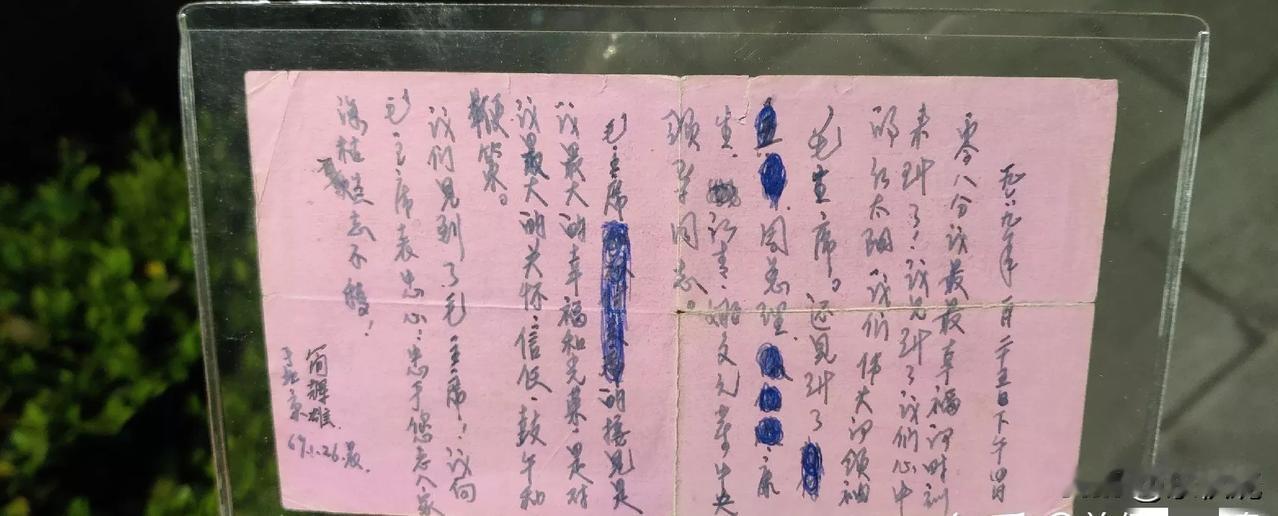 一九六九年一月二十五日下午四日
零八分 最最幸福的时刻
来到了！ 见到了 们心中
的红太阳 们伟大的领袖
毛主席。还见到了
周总理 康
生、江青、姚文元等中央
领导同志。
毛主席 的接见是
最大的幸福和光荣：是对
最大的关怀、信任、鼓午和
鞭策。
们见到了毛主席！ 向
毛主席表忠心：忠于您老人家
海枯 志不移！
简辉雄
于北京
69.1.26.晨.